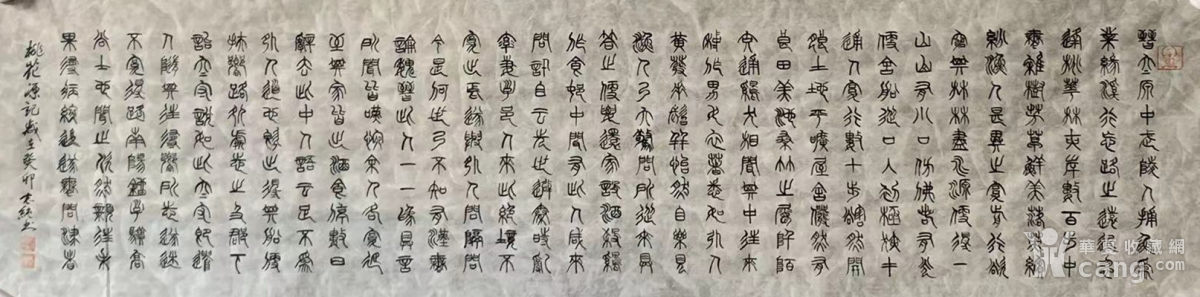 晉太原中武陵人捕魚為
業緣溪行忘路之遠近
逢桃華林夾岸數百步中
無雜樹芳草鮮美落英繽
紛漁人甚異之復前行欲
窮其林林盡水源便得一
山山有小口仿佛若有光
便舍船從口入初極狹才
通人復行數十步豁然開
朗土地平曠屋舍儼然有
良田美池桑竹之屬阡陌
交通雞犬相聞其中往來
種作男女衣著悉如外人
黃髮垂髫並怡然自樂見
漁人乃大驚問所從來具
答之便要還家設酒殺雞
作食村中聞有此人咸來
問訊自云先世避秦時亂
率妻子邑人來此絕境不
復出焉遂與外人間隔問
今是何世乃不知有漢無
論魏晉此人一一為具言
所聞皆嘆惋余人各復延
至其家皆出酒食停數日
辭去此中人語云不足為
外人道也既出得其船便
扶向路處處志之及郡下
詣太守說如此太守即遣
人隨其往尋向所志遂迷
不復得路南陽劉子驥高
尚士也聞之欣然規往未
果尋病終後遂無問津者
桃花源記歲在癸卯
華夏收藏網
cang.com